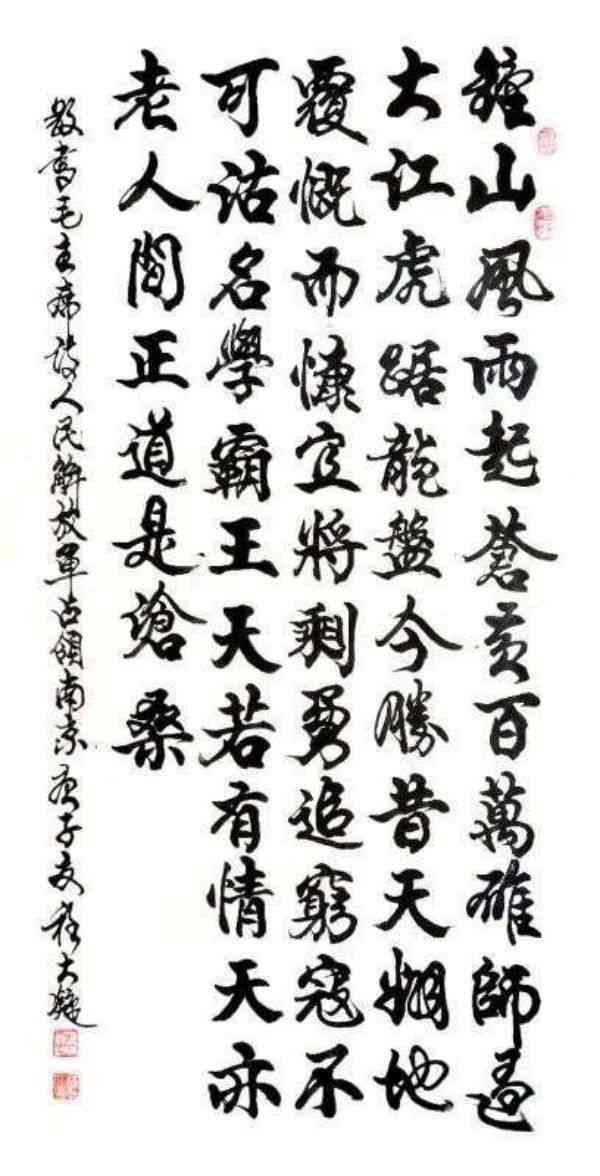 鐘山風雨起蒼黃百萬雄師過
大江虎踞龍盤今勝昔天翻地
覆慨而慷宜將剩勇追窮寇不
可沽名學霸王天若有情天亦
老人間正道是滄桑
敬書毛主席詩人民解放軍占領南京庚子